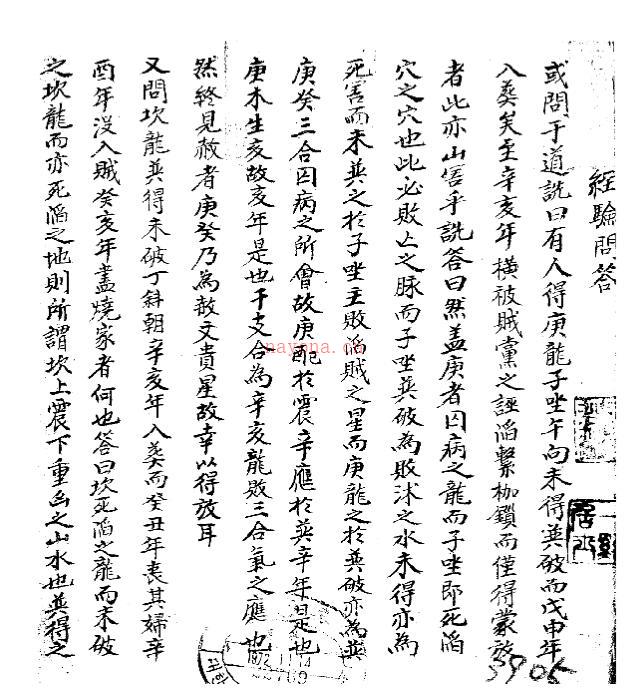 經驗問答
或問于道詵曰有人得庚龍子坐午向未得巽破而戊申年
入葬矣至辛亥年橫被賊黨之誣滔繫枷鎖而僅得蒙放
者此亦山害乎詵答曰然盖庚者囚病之龍而子坐即死滔
穴之穴也此必敗亡之脉而子坐巽破為敗沐之水未得亦為
死害而未巽之於子坐主敗滔賊之星而庚龍之於巽破亦為巽
庚癸三合囚病之所會故庚配於震辛應於巽辛年是也
庚木生亥故亥年是也干支合為辛亥龍敗三合氣之應也
然終見赦者庚癸乃為赦文貴星故幸以得放耳
又問坎龍巽得未破丁斜朝辛亥年入葬而癸丑年喪其婦辛
酉年沒入賊癸亥年盡燒家者何也答曰坎死滔之龍而未破
之坎龍而亦死滔之地則所謂坎上震下重凶之山水也巽得之
nayana.ca
5905